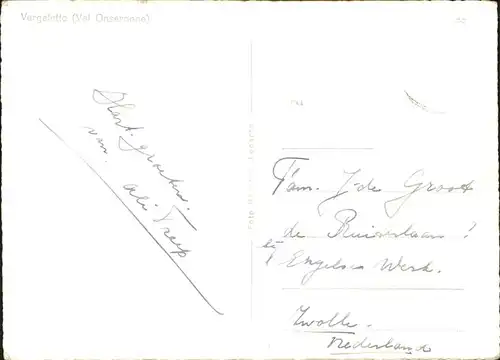 Vergeletto (Val Onsernone)
Hart. groeten.
van.
Ali Treep
Fam. J. de Groot
de Ruiterlaan
bij Engelse Werk.
Zwolle.
Nederland